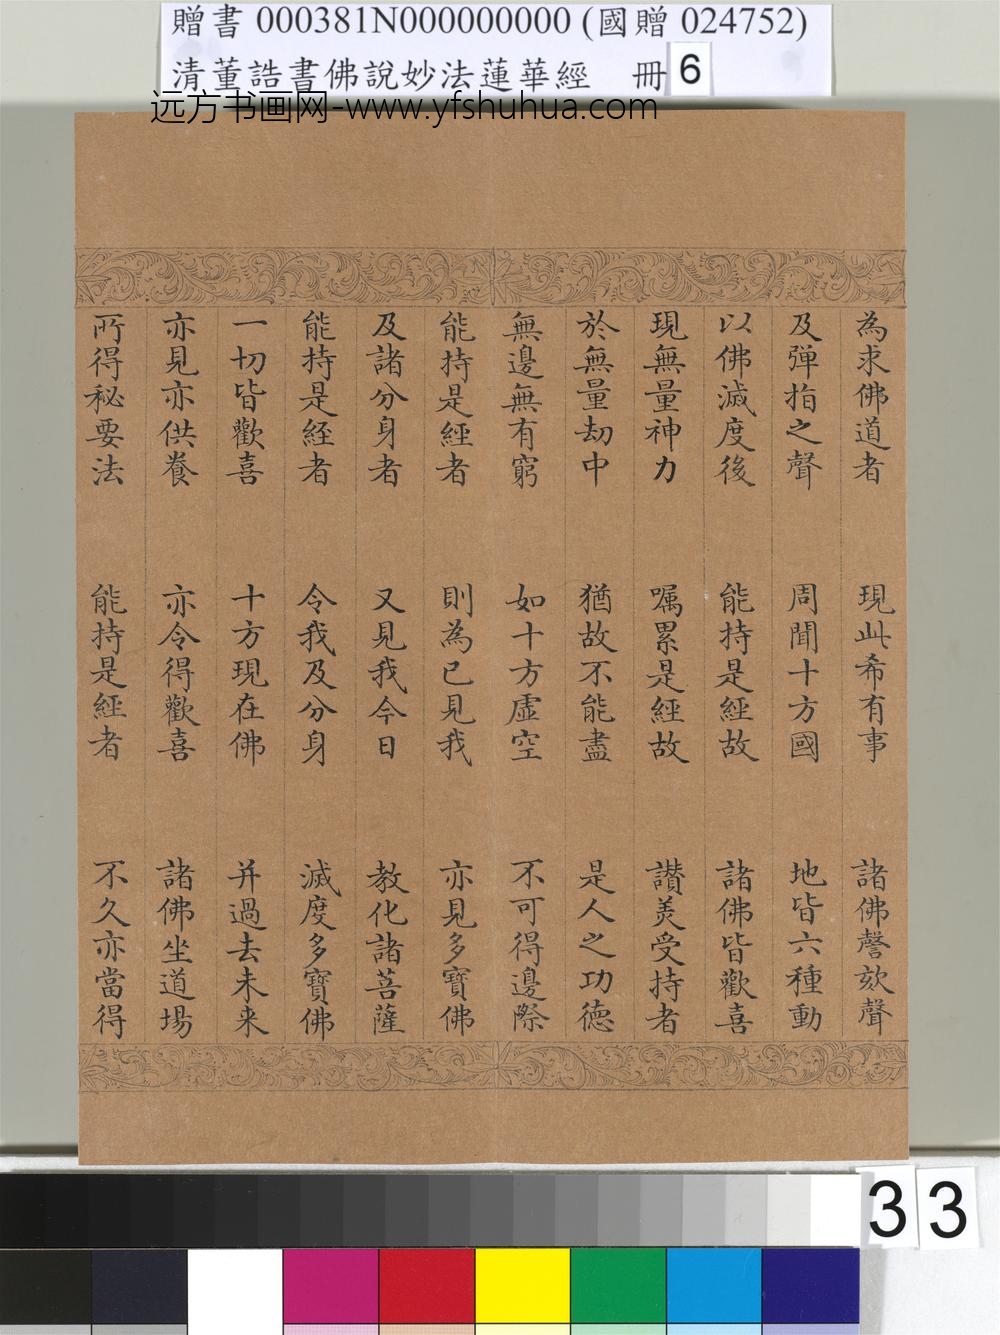 贈書 000381N000000000 (國贈 024752)
清董誥書佛說妙法蓮華經 冊 6
远方书画网-www.yfshuhua.com
為求佛道者 現此希有事 諸佛謦欬聲
及彈指之聲 周聞十方國 地皆六種動
以佛滅度後 能持是經故 諸佛皆歡喜
現無量神力 嘱累是經故 讚美受持者
於無量劫中 猶故不能盡 是人之功德
無邊無有窮 如十方虛空 不可得邊際
能持是經者 則為已見我 亦見多寶佛
及諸分身者 又見我今日 教化諸菩薩
能持是經者 令我及分身 滅度多寶佛
一切皆歡喜 十方現在佛 并過去未来
亦見亦供養 亦令得歡喜 諸佛坐道場
所得秘要法 能持是經者 不久亦當得
33